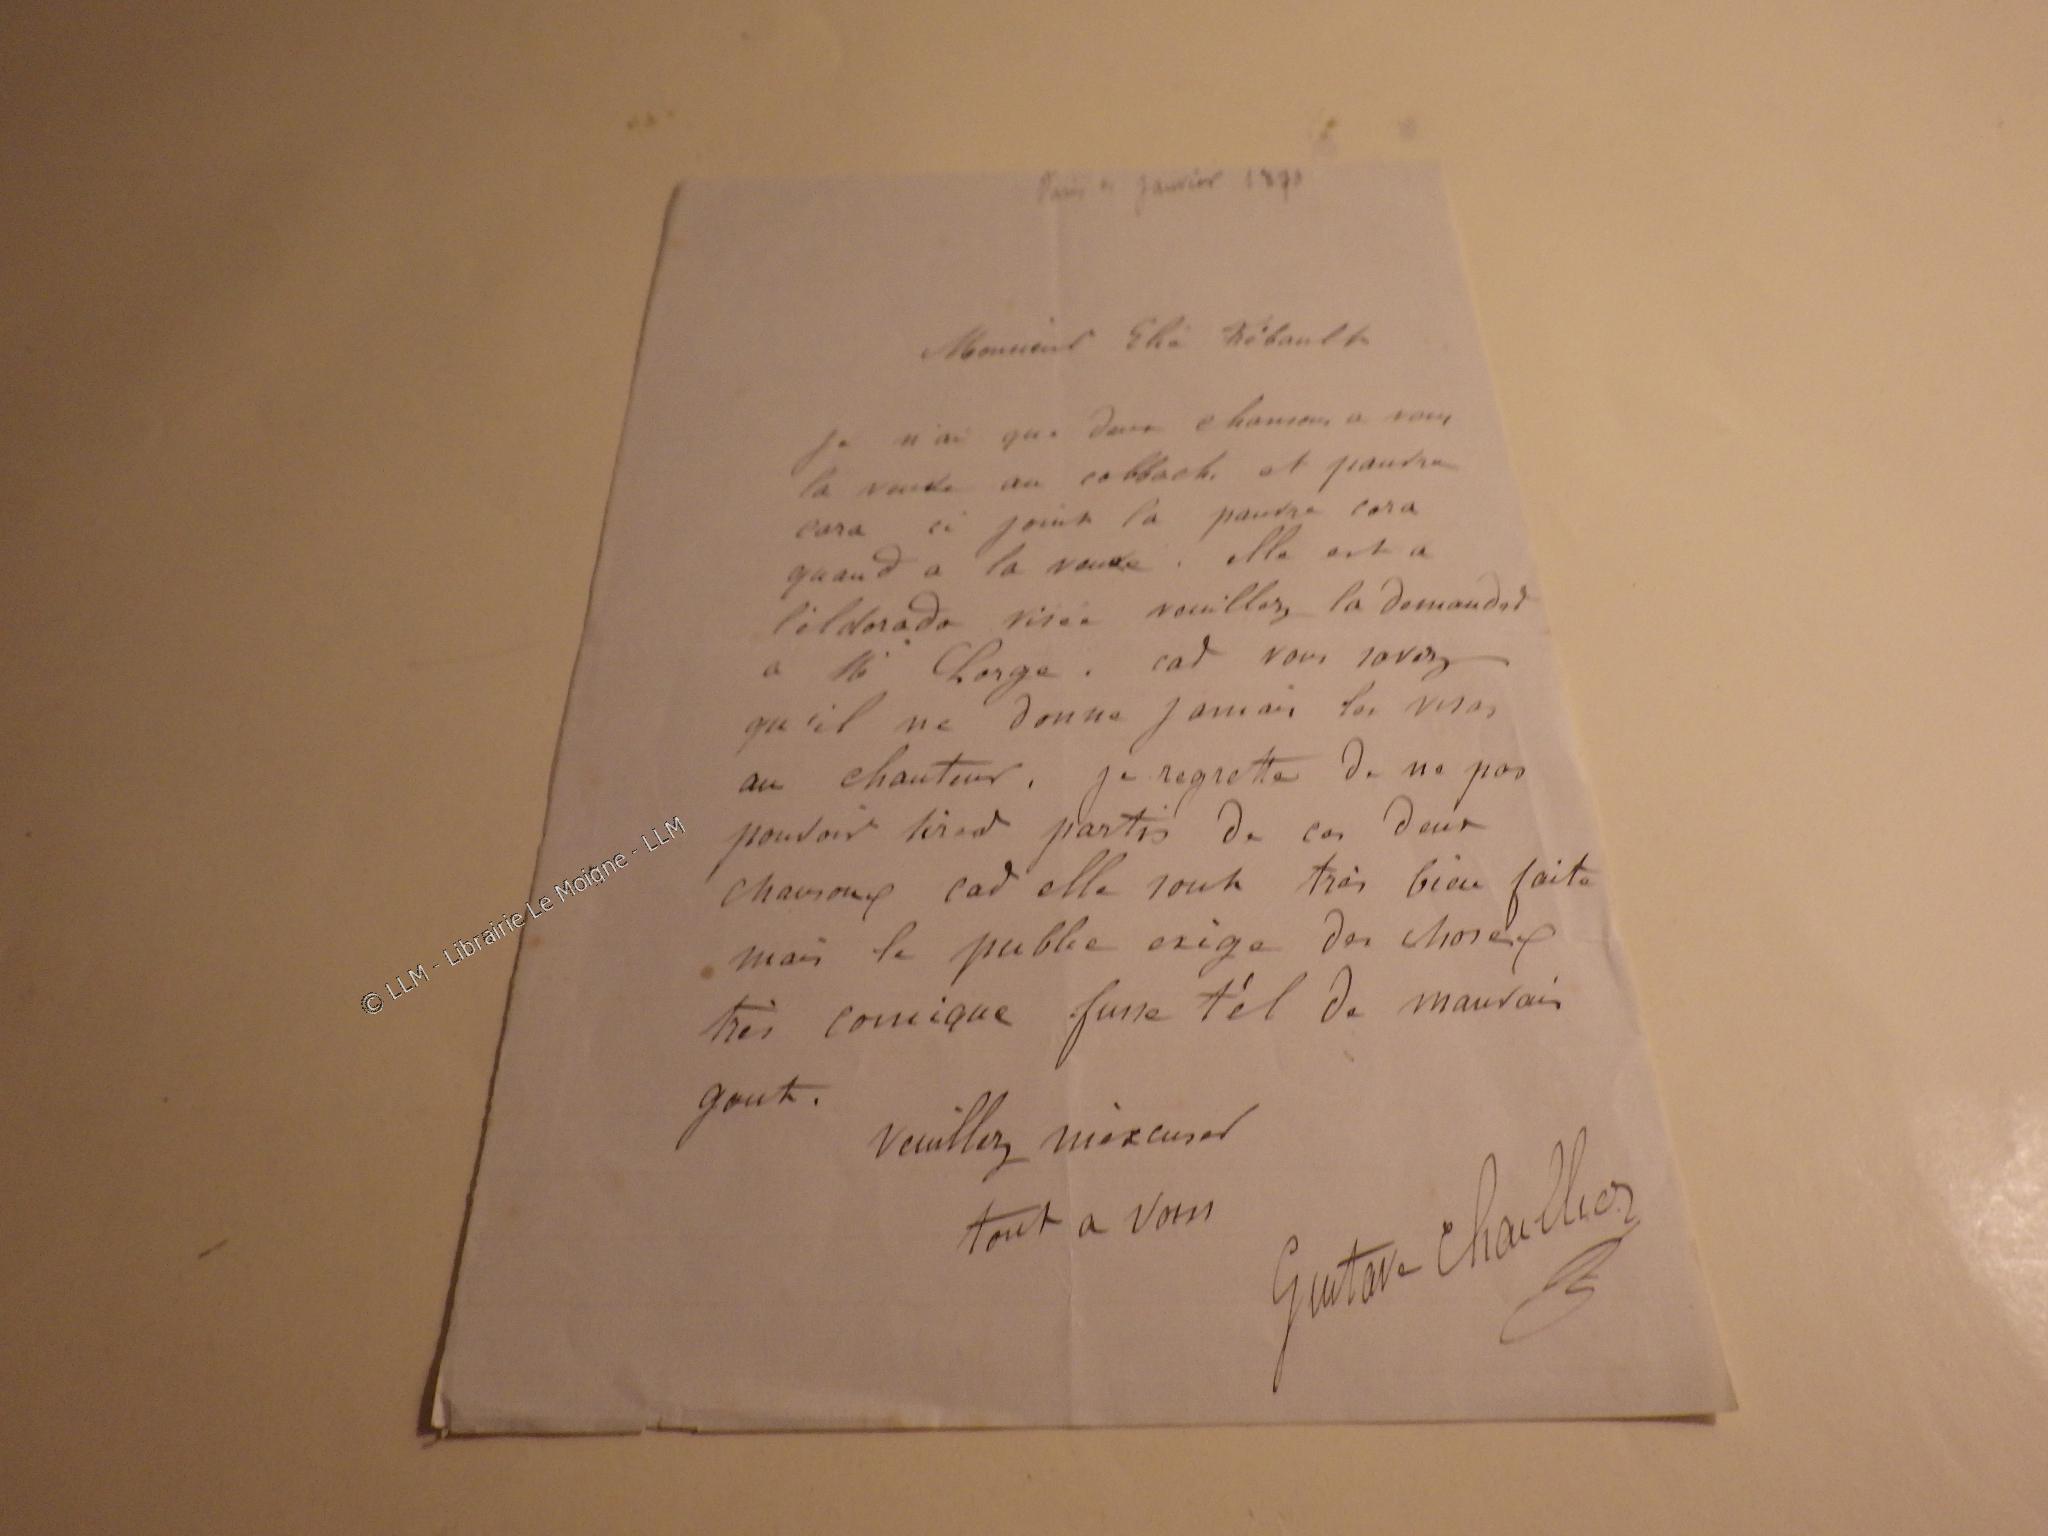 Paris janvier 1870
Monsieur Elie Frébault
Je n'ai que deux chansons a vous
la veuve au cobbach. et pauvre
cora ci joint la pauvre cora
quand a la veuve. elle est a
l'éldorado visée veuillez la demander
a Mr Lorge. car vous savez
qu'il ne donne jamais les visas
au chanteur. je regrette de ne pas
pouvoir tirer partis de ces deux
chansons car elle sont très bien faite
mais le public exige des choses
très comique fusse t'él de mauvais
gout.
veuillez m'éxcuser
tout a vous
Gustave Chaillier
© LLM - Librairie Le Moigne - LLM